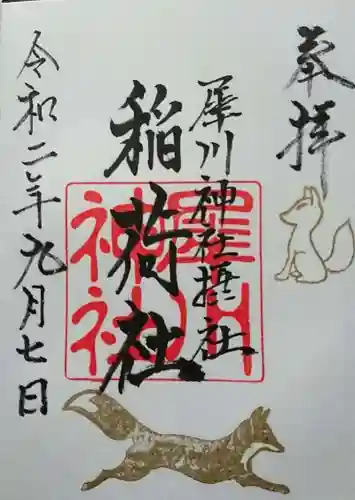 奉拝
犀川神社摂社
稲荷社
令和二年九月七日
犀川神社